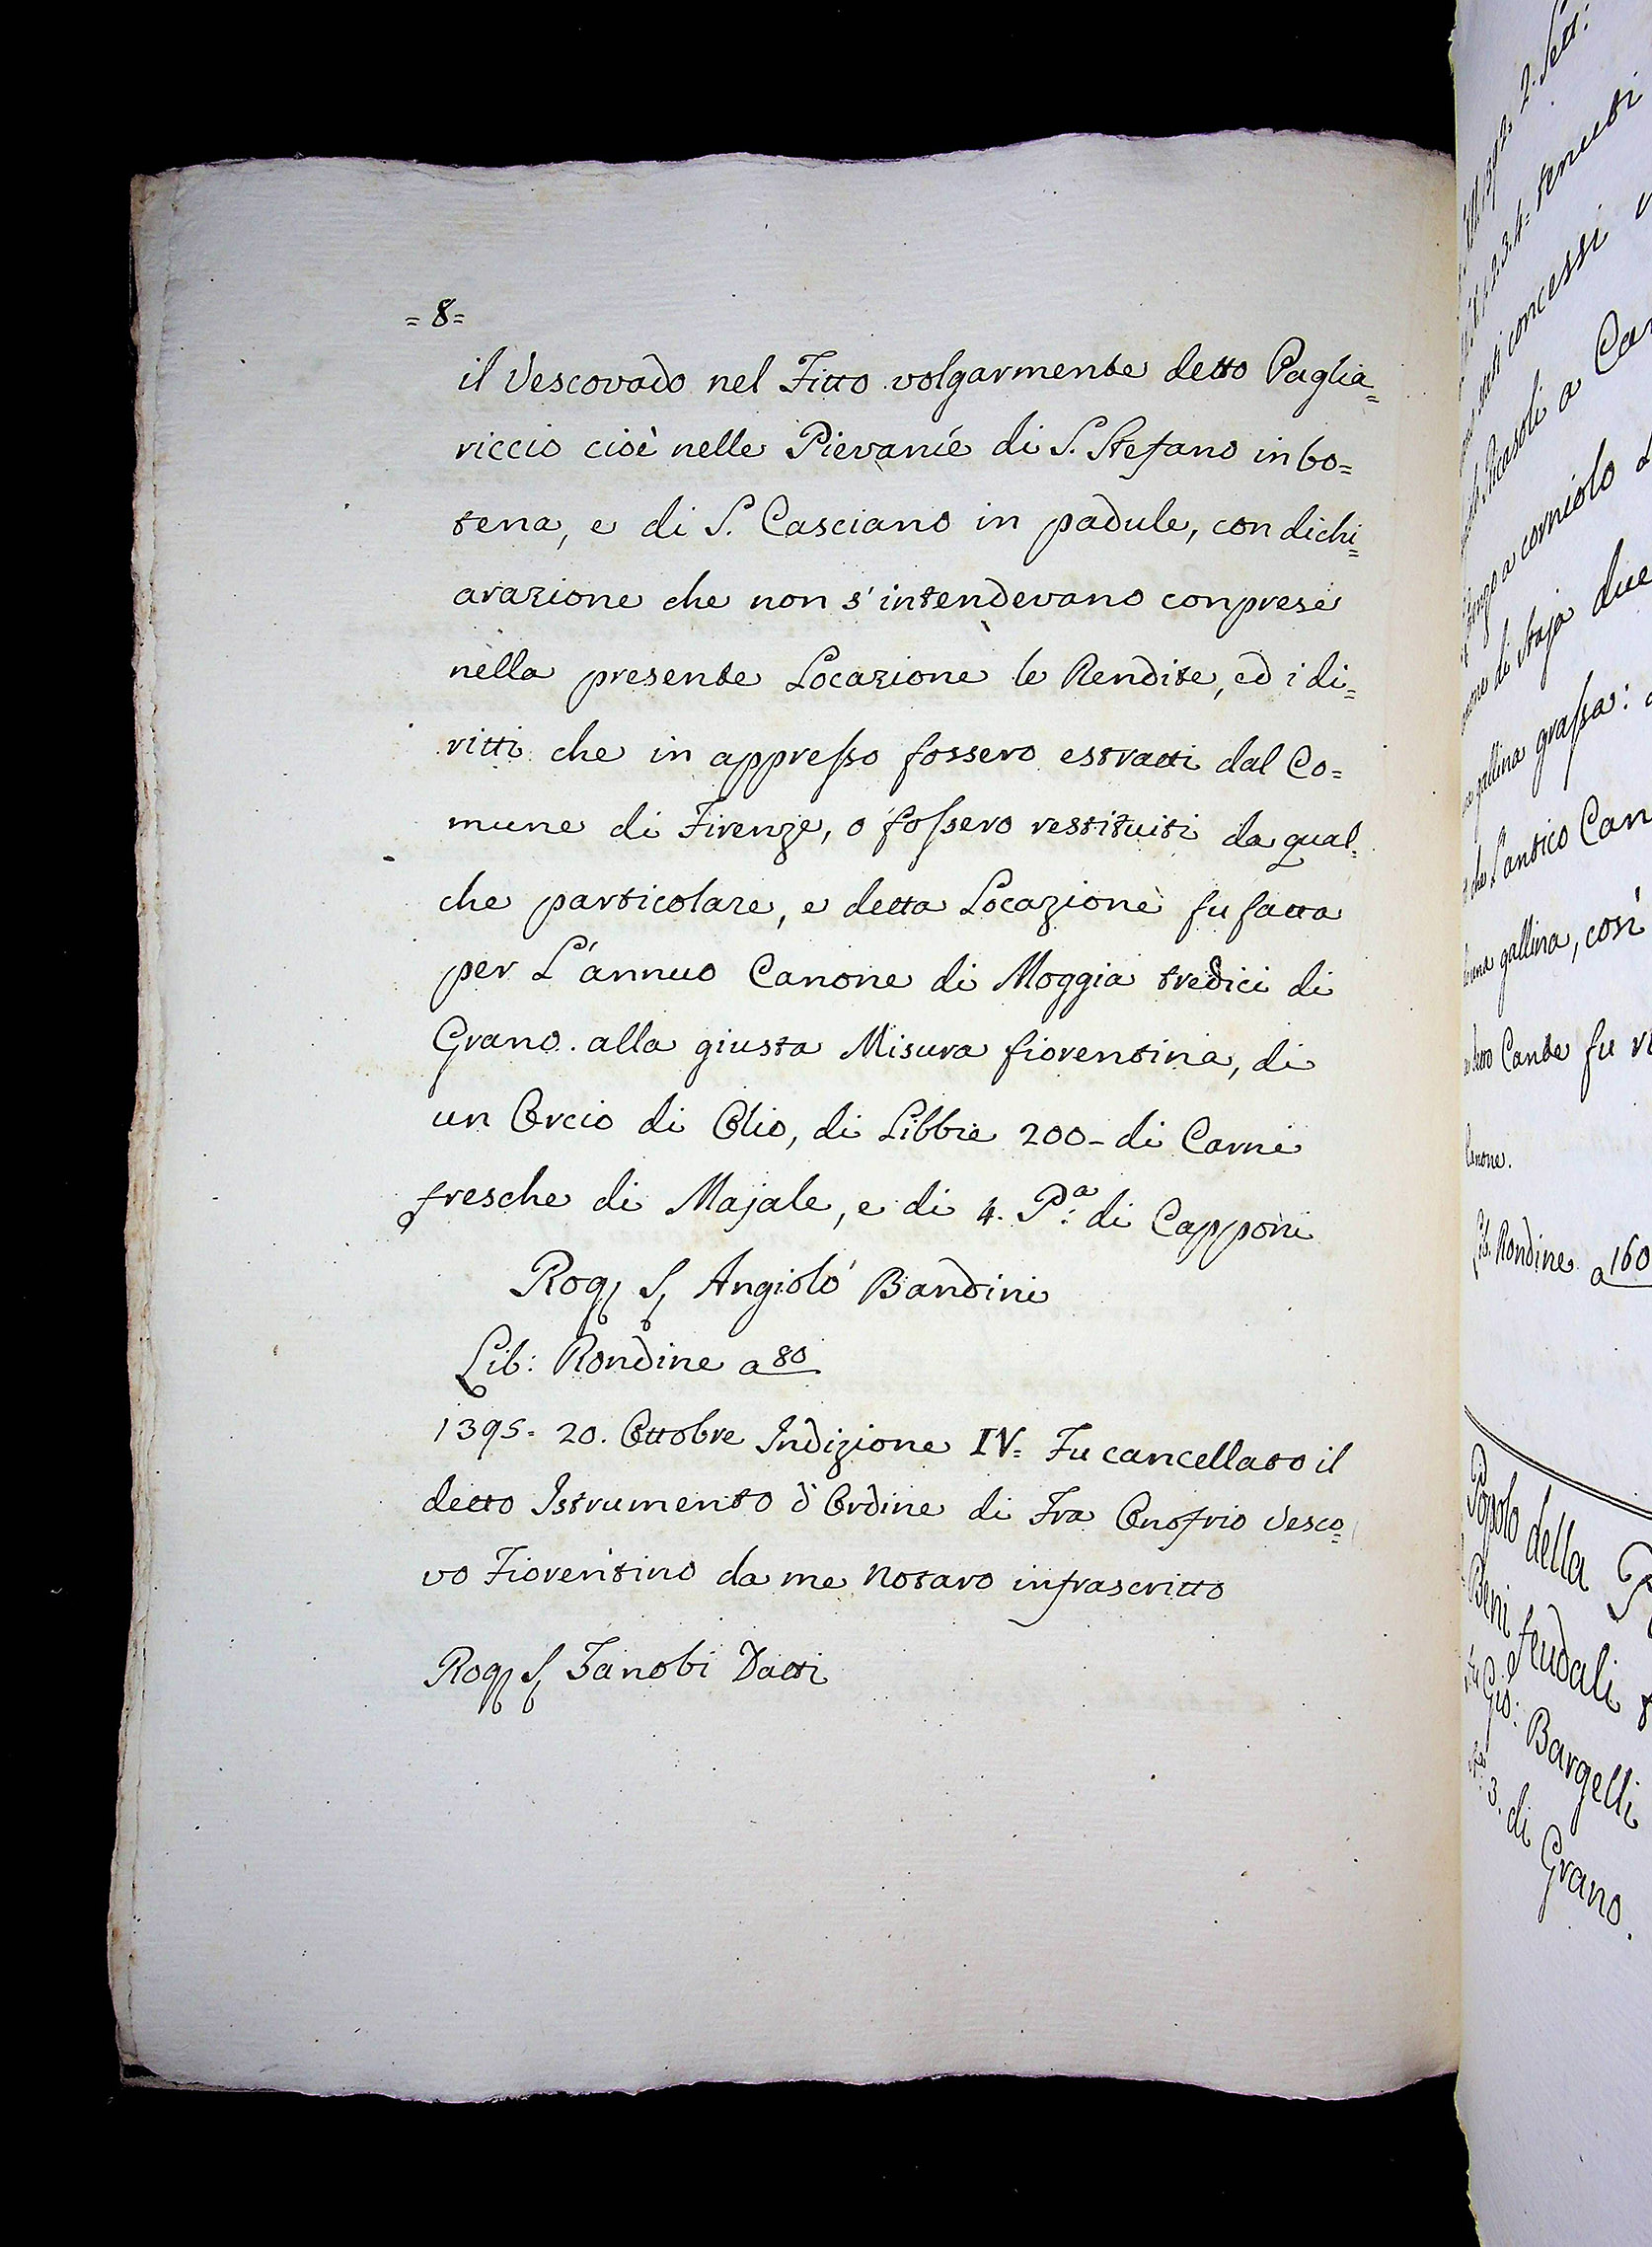 =8=
il Vescovado nel Fitto volgarmente detto Paglia=
riccio cioè nelle Pievanie di S. Stefano in bo=
tena, e di S. Casciano in padule, con dichi=
arazione che non s'intendevano conprese
nella presente Locazione le Rendite, ed i di=
ritti che in appresso fossero estratti dal Co=
mune di Firenze, o fossero restituiti da qual=
che particolare, e detta Locazione fu fatta
per L'annuo Canone di Moggia tredici di
Grano alla giusta Misura fiorentina, di
un Orcio di Olio, di Libbre 200- di Carni
fresche di Majale, e di 4. P:a di Capponi
Rog S Angiolo Bandini
Lib: Rondine a 80
1395. 20. Ottobre Indizione IV= Fu cancellato il
detto Istrumento d'Ordine di Fra Onofrio Vesco=
vo Fiorentino da me Notaro infrascritto
Rog S Zanobi Datti
2. Sett:
1. 2. 3. 4= tenuti
concessi
Ricasoli a
a corniolo
di Staja due
gallina grassa:
che L'antico Can
una gallina, così
detto Cante fu
Canone.
Lib. Rondine a 160
Popolo della
Beni feudali
Gio: Bargelli
3. di Grano.